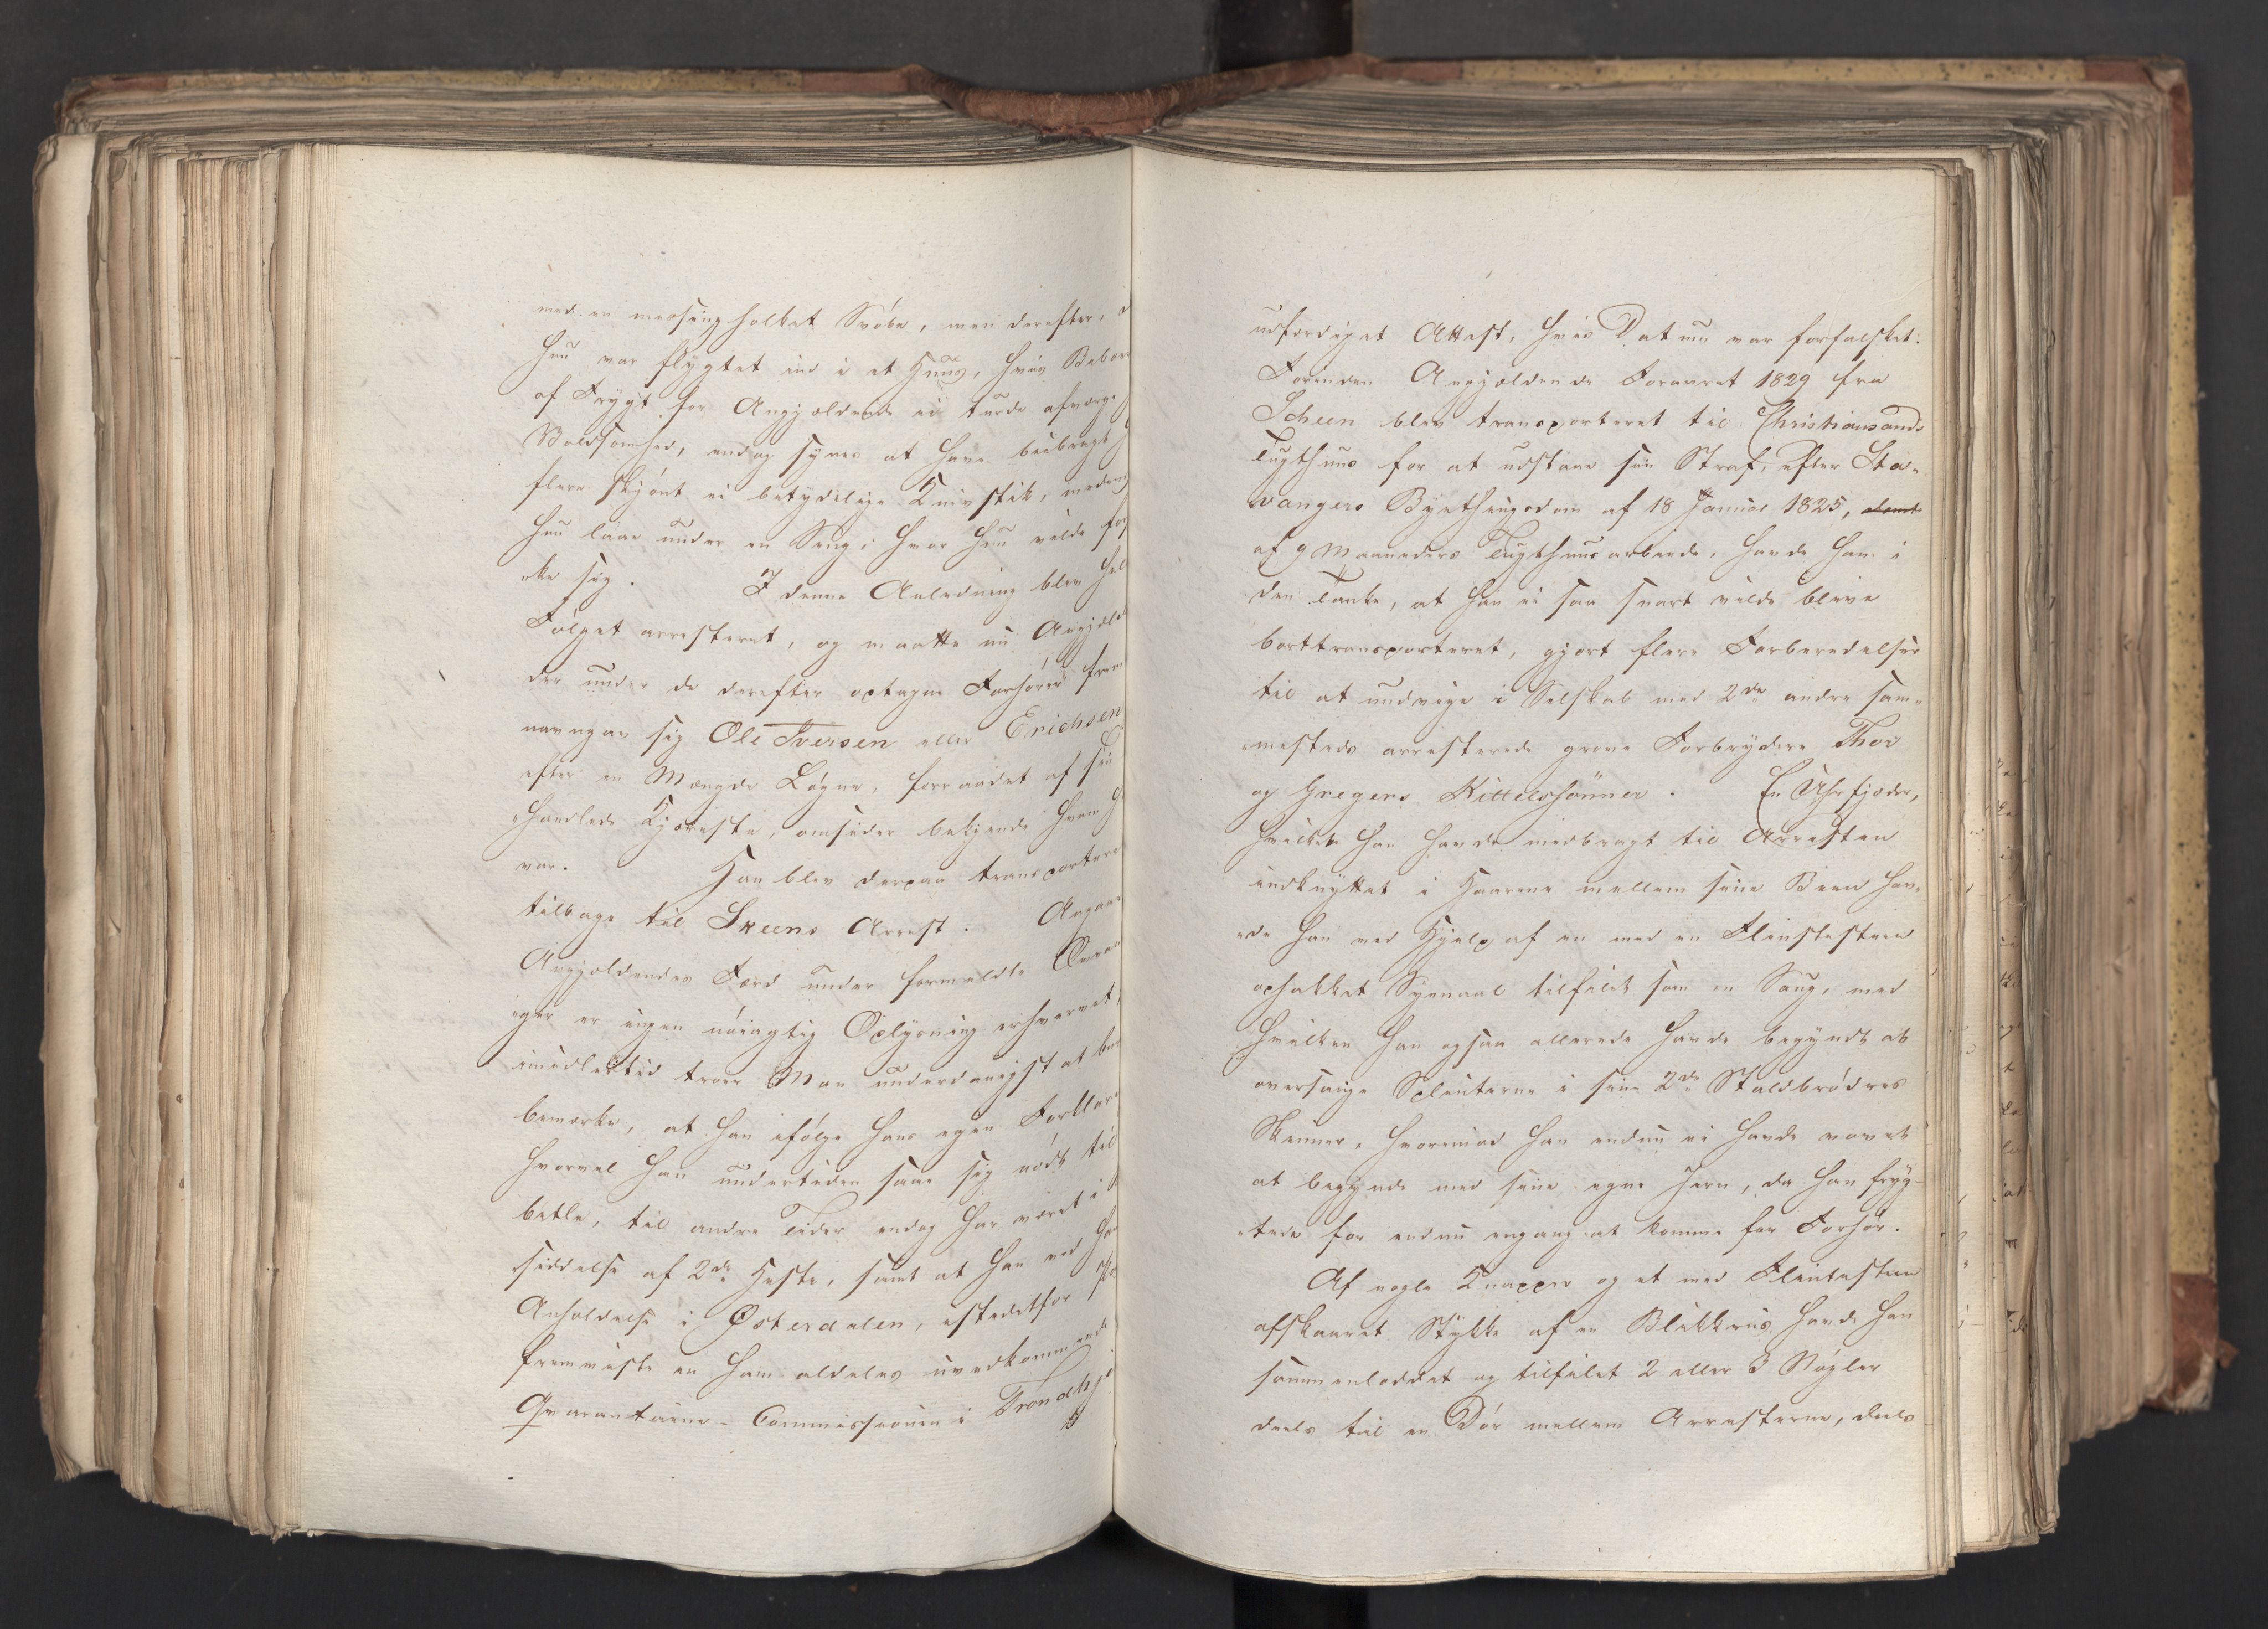 med en messing holket Svøbe, men derefter, d
hun var flygtet ind i et Huus, hvis Beboe
af Frygt for Angjældende ei turde afværge
Voldsomhed, endog synes at have bibragt h
flere skjønt ei betydelige Knivstik, medens
hun laae under en Seng, hvor hun vilde for
ske sig. I denne Anledning blev hel
Følget arresteret, og maatte nu Angjæl
der under de derefter optagne Forhører frem
navngav sig Ole Iversen eller Erichsen
efter en Mængde Løgne, forraadet af sin
handlede Kjæreste, omsider bekjende hvem h
var. Han blev derpaa transportere
tilbage til Skeens Arrest. Angaae
Angjældendes Færd under formeldte Omva
ger er ingen nøiagtig Oplysning erhvervet,
imidlertid troer Man underdanigst at bu
bemærke, at han ifølge hans egen Forklar
hvorvel han undertiden saae sig nødt til
betle, til andre Tider endog har været i
siddelse af 2de Heste, samt at han ved han
Anholdelse i Østerdalen, istedetfor
fremviste en ham aldeles uvedkommende
Qvarantaine-Commissionen i Trondhj
udfærdiget Attest, hvis Datum var forfalsket.
Forinden Angjældende Foraaret 1829 fra
Scheen blev transporteret til Christiansands
Tugthuus for at udstaae sin Straf, efter Sta-
vangers Byethingsdom af 18 Januar 1825,
af 9 Maaneders Tugthuusarbeide, havde han i
den Tanke, at han ei saa snart vilde blive
borttransporteret, gjort flere Forberedelser
til at undvige i Selskab med 2de andre sam-
mesteds arresterede grove Forbrydere Thor
og Gregers Kittelsønner. En Uhrfjæder,
hvilken han havde medbragt til Arresten
indknyttet i Haarene mellem sine Been hav-
de han ved Hjelp af en med en Flintesteen
ophakket Synaal tilfilet som en Saug, med
hvilken han ogsaa allerede havde begyndt at
oversauge Splinterne i sine 2de Staldbrødres
Skinner, hvorimod han endnu ei havde vovet
at begynde med sine egne Jern, da han fryg-
tede for endnu engang at komme for Forhør.
Af nogle Knapper og et med Flintesteen
afskaaret Stykke af en Blikkruus havde han
sammenloddet og tilfilet 2 eller 3 Nøgler
deels til en Dør mellem Arresterne, deels